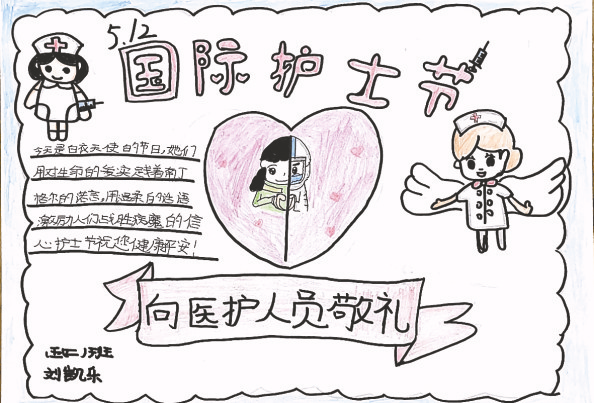 5.12
国际护士节
今天是白衣天使的节日,她们
用对生命的爱实践着南丁
格尔的诺言,用温柔的话语
激励人们战胜病魔的信
心护士节祝您健康平安!
向医护人员敬礼
五二班
刘凯乐